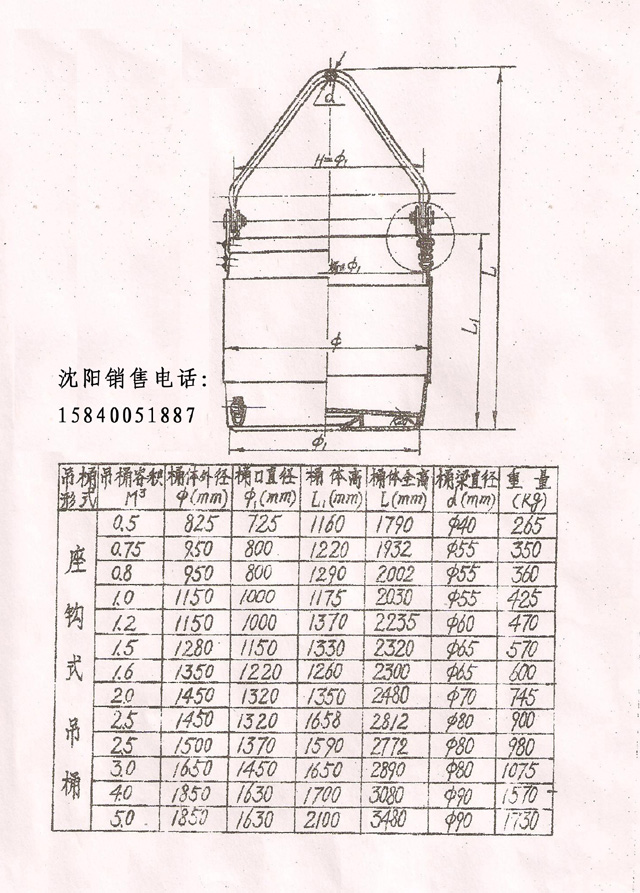 d
H=ϕ₁
桶口ϕ₁
L
L₁
ϕ
ϕ₁
沈阳销售电话:
15840051887
吊桶形式 吊桶容积M³ 桶体外径ϕ(mm) 桶口直径ϕ₁(mm) 桶体高L₁(mm) 桶体全高L(mm) 桶梁直径d(mm) 重量(Kg)
座钩式吊桶
0.5 825 725 1160 1790 ϕ40 265
0.75 950 800 1220 1932 ϕ55 350
0.8 950 800 1290 2002 ϕ55 360
1.0 1150 1000 1175 2030 ϕ55 425
1.2 1150 1000 1370 2235 ϕ60 470
1.5 1280 1150 1330 2320 ϕ65 570
1.6 1350 1220 1260 2300 ϕ65 600
2.0 1450 1320 1350 2480 ϕ70 745
2.5 1450 1320 1658 2812 ϕ80 900
2.5 1500 1370 1590 2772 ϕ80 980
3.0 1650 1450 1650 2890 ϕ80 1075
4.0 1850 1630 1700 3080 ϕ90 1570
5.0 1850 1630 2100 3480 ϕ90 1730